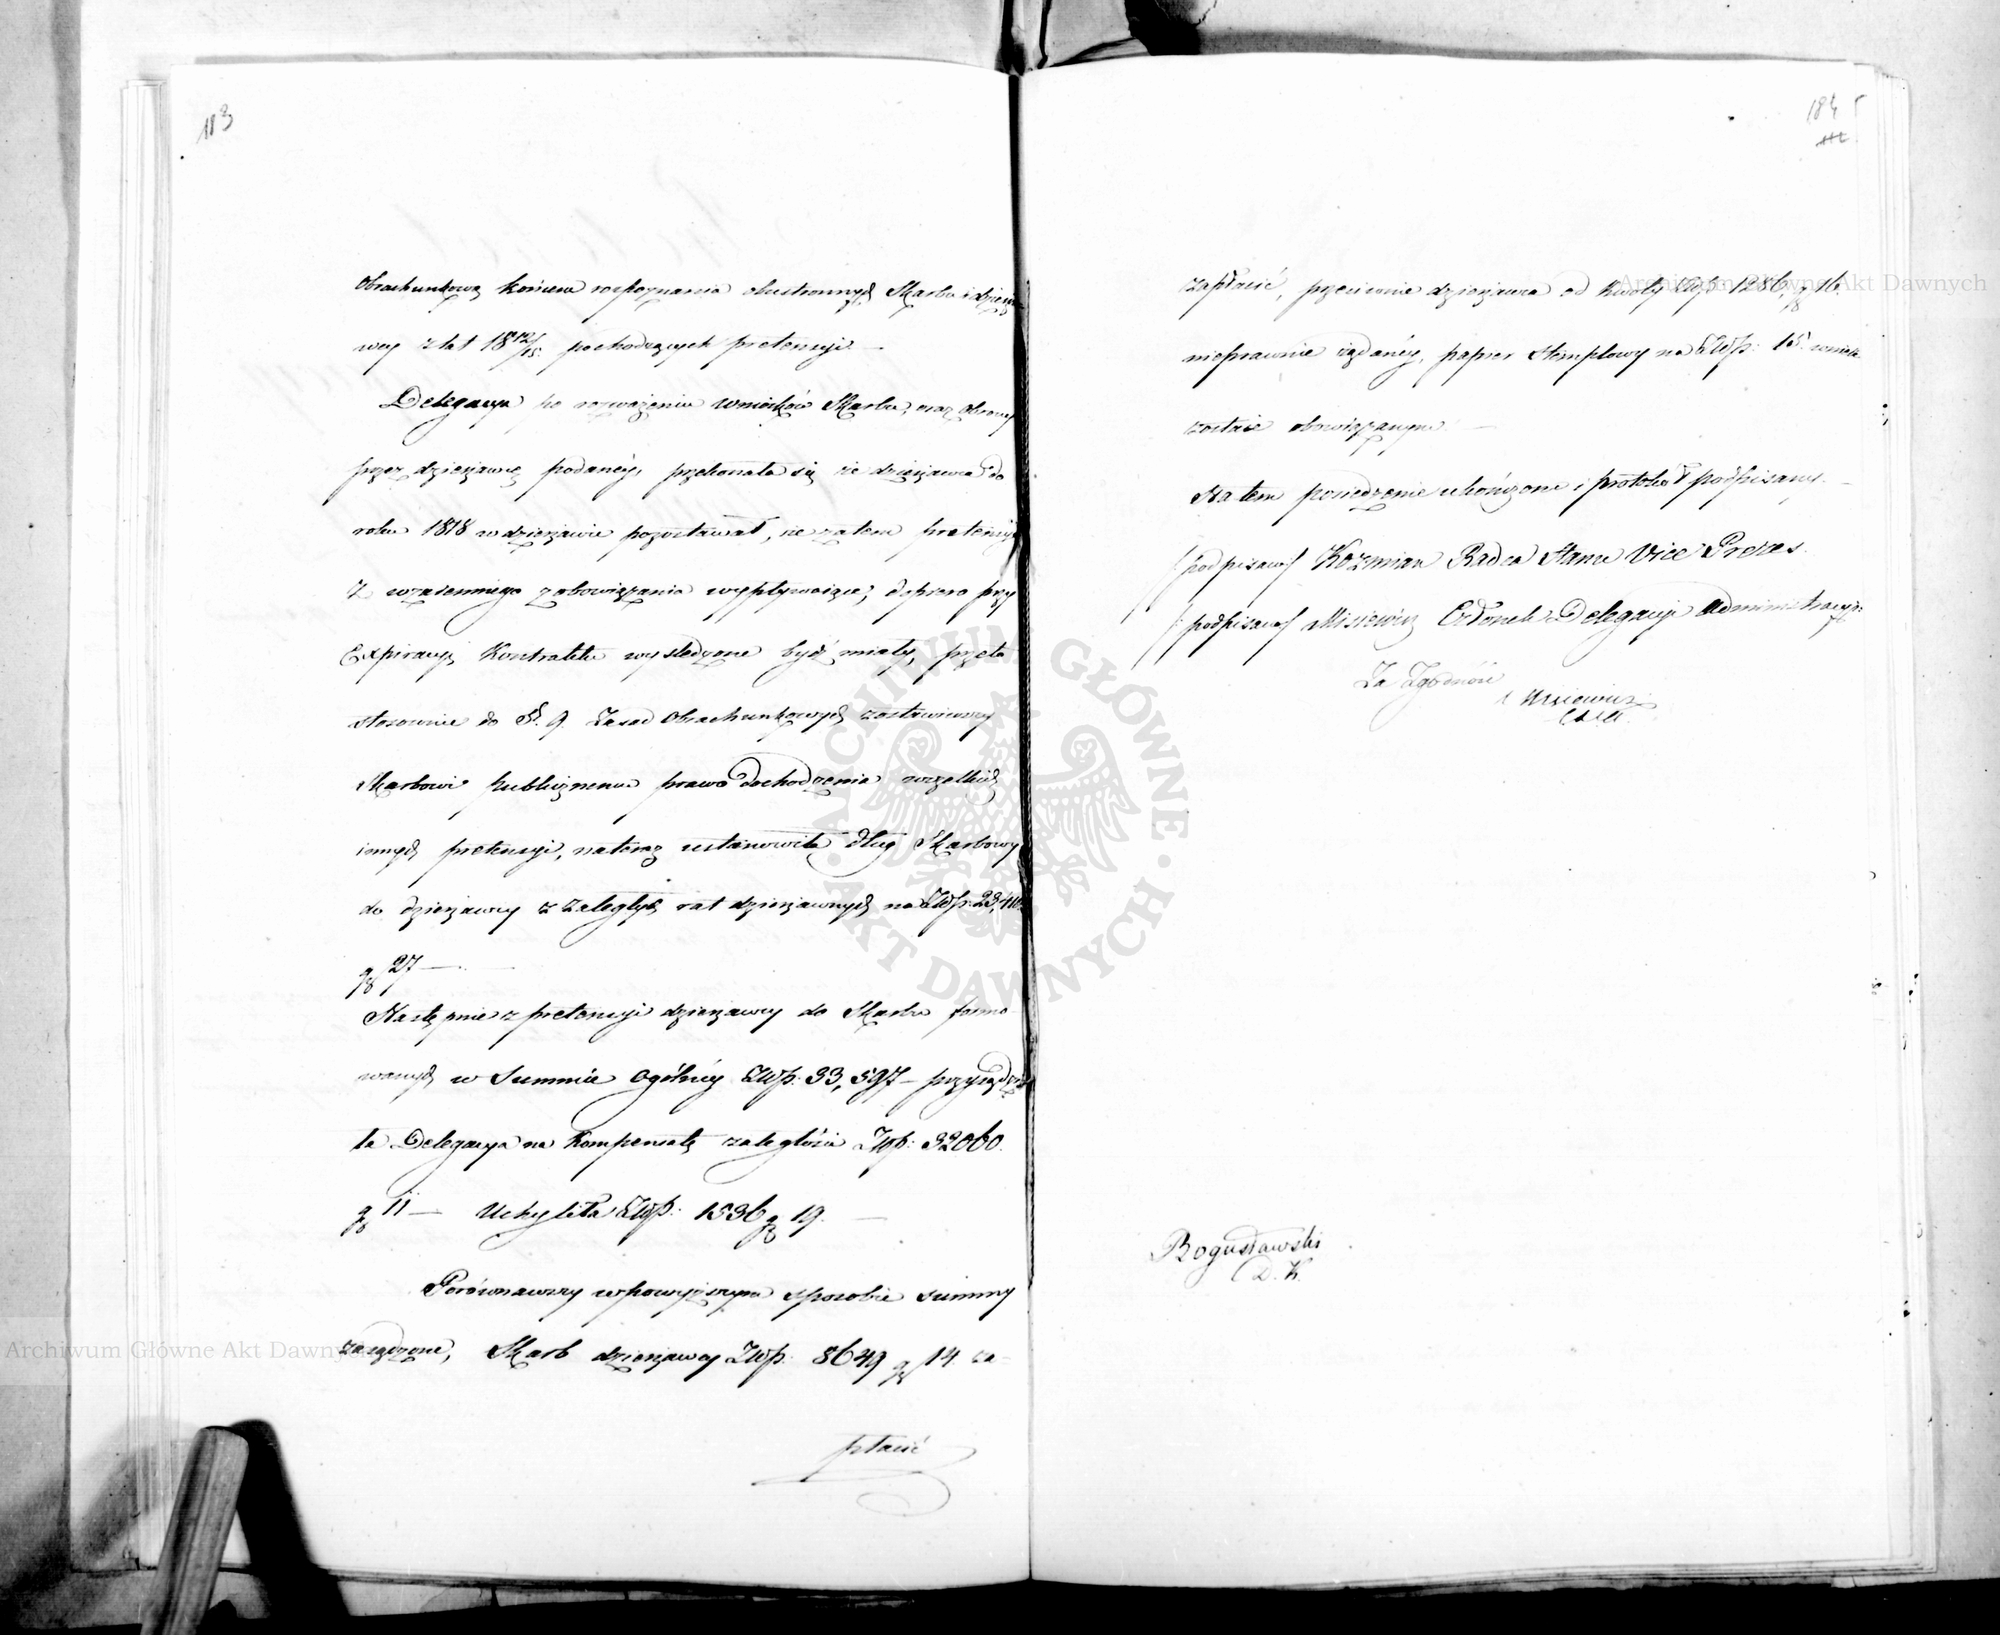 113
Obrachunkową końcem rozpoznania obustronnych Skarbu i dzierża
wcy z lat 18 12/15. pochodzących pretensyi. —
Delegacya po rozważeniu wniosków Skarbu, oraz obrony
przez dzierżawcę podanéy, przekonała się że dzierżawca do
roku 1818 w dzierżawie pozostawał, że zatem pretensye
z wzaiemnego zobowiązania wypływaiące, dopiero przy
Expiracyi Kontraktu wyśledzone być miały, przeto
stosownie do §. 9. Zasad Obrachunkowych zostawiwszy
Skarbowi publicznemu prawo dochodzenia wszelkich
innych pretensyi, na teraz ustanowiła dług Skarbowy
do dzierżawcy z zaległych rat dzierżawnych na Złłp. 23,
gr 27 —
Następnie z pretensyi dzierżawcy do Skarbu formo
wanych w Summie Ogólnéy Złłp. 33,597 — przysądzi
ła Delegacya na Kompensatę zaległości Złłp. 32060.
gr 11 — Uchyliła Złłp. 1536 gr 19. —
Porównawszy w powyższym sposobie summy
zasądzone, Skarb dzierżawcy Złłp. 8649 gr 14. za=
płacić
184 5
zapłacić, przeciwnie dzierżawca od kwoty Złłp. 1286, gr 16.
nieprawnie żądanéy, papier stemplowy na Złłp. 15. wnieść
zostaie obowiązanym. —
Na tem posiedzenie ukończone i protokół podpisany. —
/podpisano/ Koźmian Radca Stanu Vice Prezes.
/podpisano/ Misiewicz Członek Delegacyi Administracyi:
Za Zgodność
Misiewicz
Bogusławski
D. K.
Archiwum Główne Akt Dawnych
Archiwum Główne Akt Dawnych
ARCHIWUM GŁÓWNE · AKT DAWNYCH ·